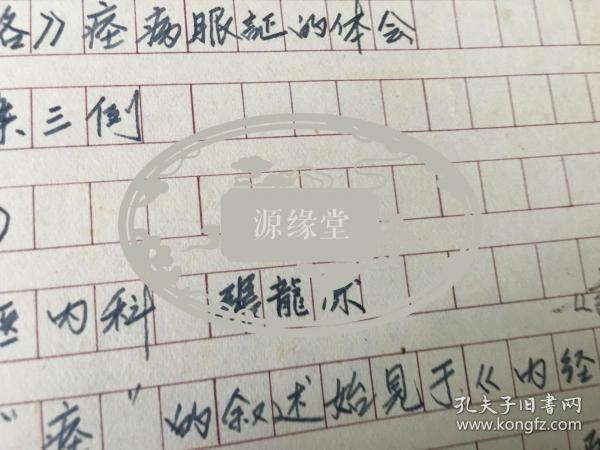 各》痉病眼証的体会
三例
)
医内科 龍
源缘堂
"痉"的叙述始見于《内经
孔夫子旧书网
www.kongfz.com